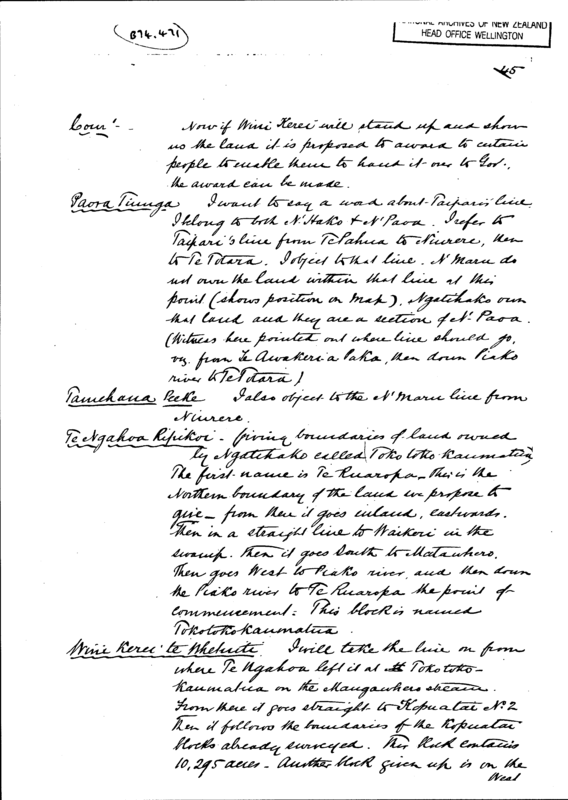 (B74.471)
NATIONAL ARCHIVES OF NEW ZEALAND
HEAD OFFICE WELLINGTON
45
Cour^t - Now if Wini Kerei will stand up and show
us the land it is proposed to award to certain
people to enable them to hand it over to Gov.,
the award can be made.
Paora Tiunga I want to say a word about Taipari's line.
I belong to both N'Hako & N'Paoa. I refer to
Taipari's line from Te Pahua to Niurere, then
to Te Totara. I object to that line. N'Maru do
not own the land within that line at this
point (shows position on map). Ngatihako own
that land and they are a section of N'. Paoa.
(Witness here pointed out where line should go,
viz. from Te Awakeri a Paka, then down Piako
river to Te Totara)
Tamehana Peeke I also object to the N'Maru line from
Niurere.
Te Ngahoa Ripikoi - Giving boundaries of land owned
by Ngatihako called Tokotokokaumatua,
The first name is Te Ruaropa - this is the
Northern boundary of the land we propose to
give - from there it goes inland, eastwards.
Then in a straight line to Waikeri in the
swamp. Then it goes South to
Then goes West to Piako river, and then down
the Piako river to Te Ruaropa the point of
commencement: This block is named
Tokotokokaumatua.
Wini Kerei te Whetuiti. I will take the line on from
where Te Ngahoa left it at Tokotoko-
kaumatua on the Mangawhero stream.
From there it goes straight to Kopuatai No 2
Then it follows the boundaries of the Kopuatai
blocks already surveyed. This block contains
10,295 acres - Another block given up is on the
West